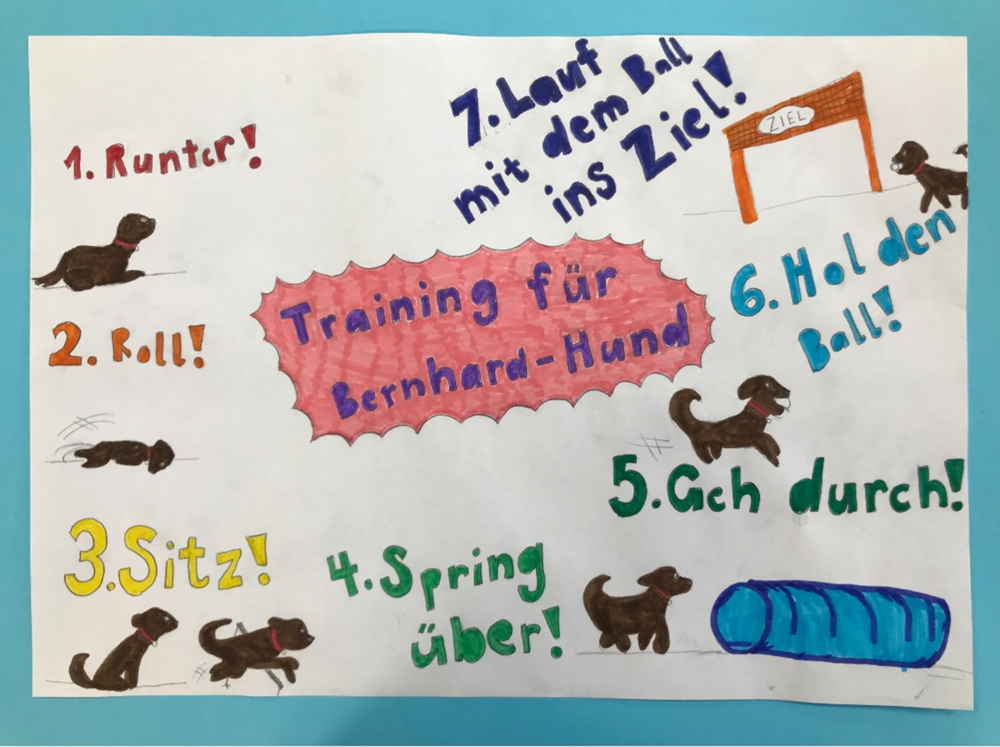 Training für
Bernhard-Hund
1. Runter!
2. Roll!
3. Sitz!
4. Spring
über!
5. Geh durch!
6. Hol den
Ball!
7. Lauf
mit dem Ball
ins Ziel!
ZIEL